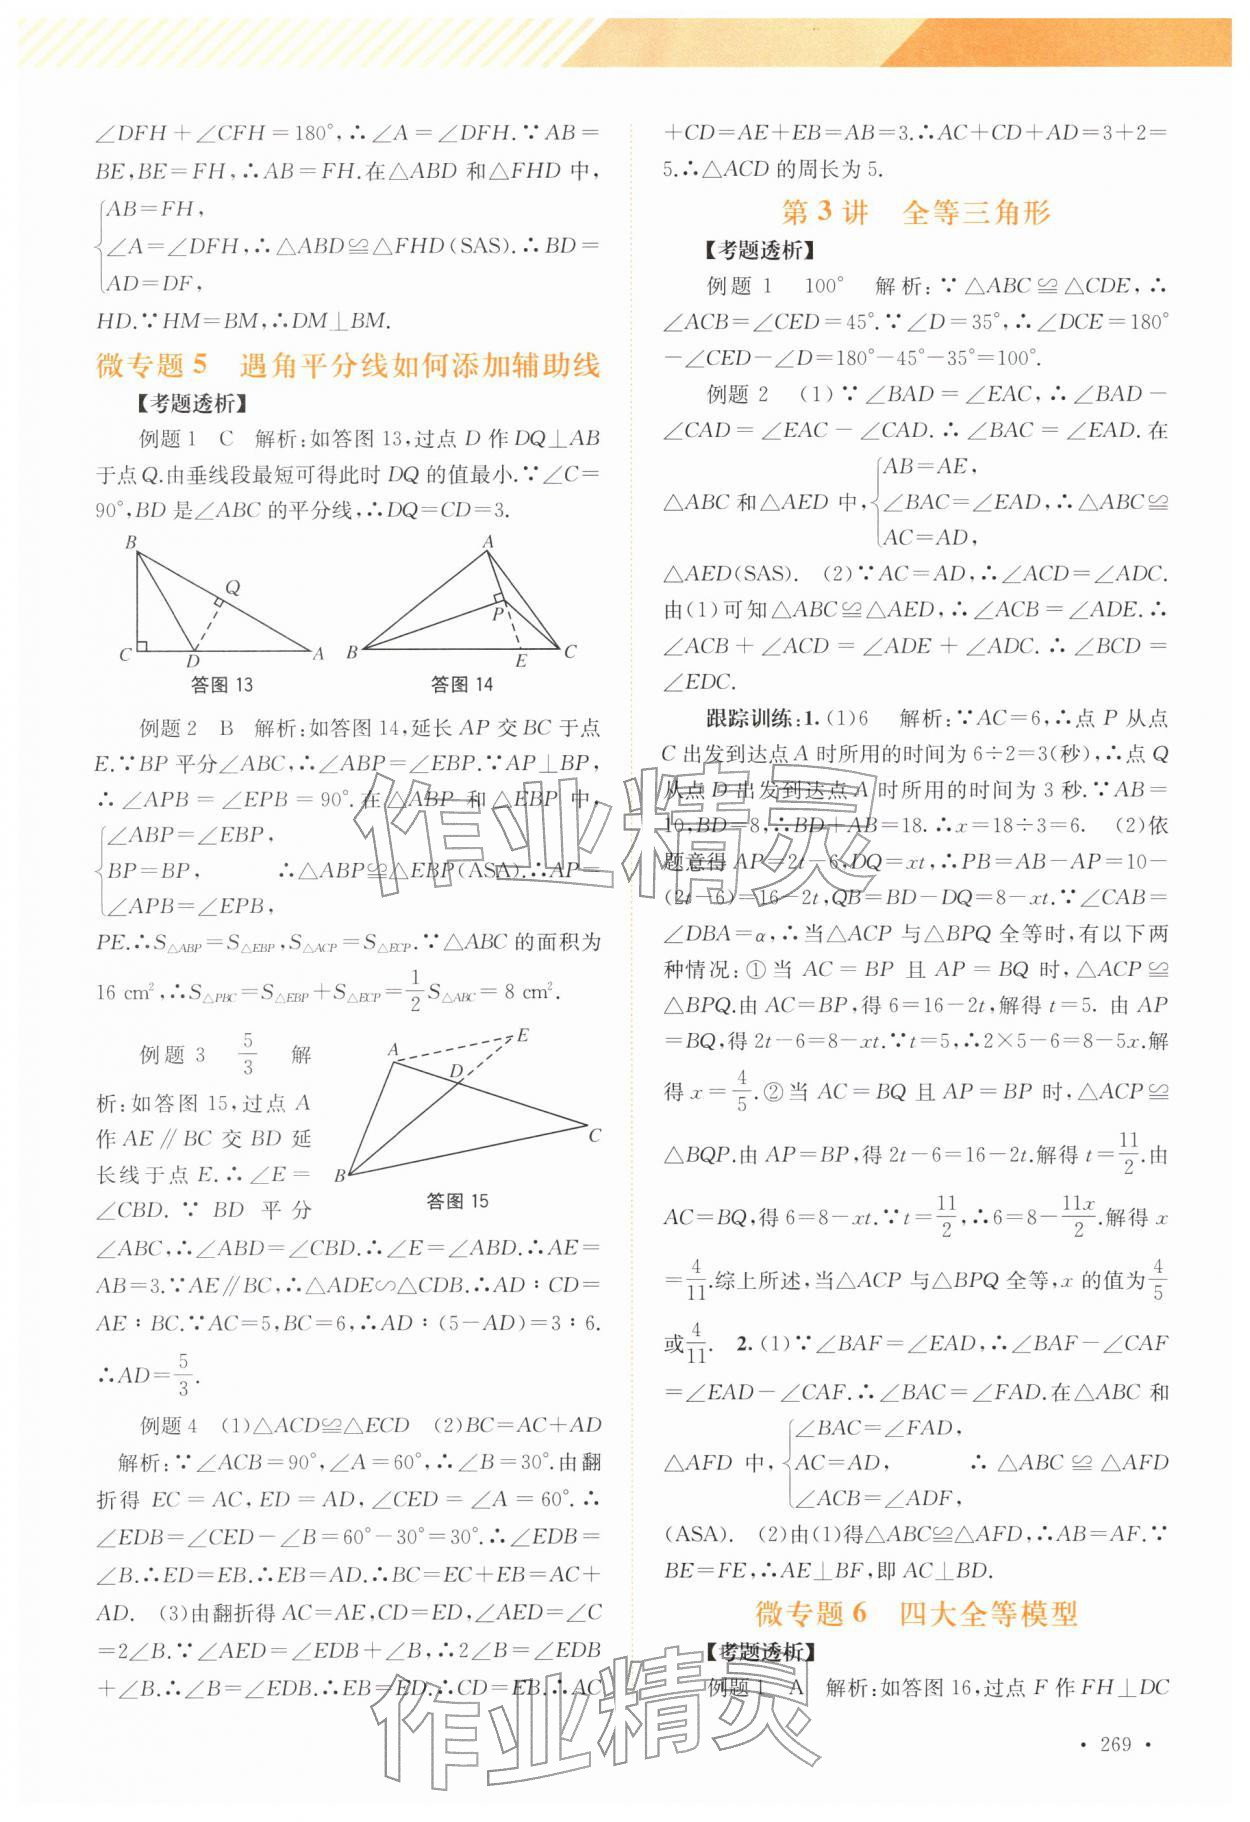 ∠DFH+∠CFH=180°,∴∠A=∠DFH.∵AB=
BE,BE=FH,∴AB=FH.在△ABD 和△FHD 中,
AB=FH,
∠A=∠DFH,∴△ABD≌△FHD(SAS).∴BD=
AD=DF,
HD.∵HM=BM,∴DM⊥BM.
微专题 5 遇角平分线如何添加辅助线
【考题透析】
例题1 C 解析:如答图 13,过点 D 作 DQ⊥AB
于点 Q.由垂线段最短可得此时 DQ 的值最小.∵∠C=
90°,BD 是∠ABC 的平分线,∴DQ=CD=3.
B
Q
C
D
A
答图 13
A
P
B
E
C
答图 14
例题2 B 解析:如答图 14,延长 AP 交 BC 于点
E.∵BP 平分∠ABC,∴∠ABP=∠EBP.∵AP⊥BP,
∴∠APB=∠EPB=90°.在△ABP 和△EBP 中,
∠ABP=∠EBP,
BP=BP, ∴△ABP≌△EBP(ASA).∴AP=
∠APB=∠EPB,
PE.∴S△ABP=S△EBP,S△ACP=S△ECP.∵△ABC 的面积为
16 cm²,∴S△PBC=S△EBP+S△ECP=1/2 S△ABC=8 cm².
例题3 5/3 解
析:如答图 15,过点 A
作 AE∥BC 交 BD 延
长线于点 E.∴∠E=
∠CBD.∵BD 平分
A
E
D
C
B
答图 15
∠ABC,∴∠ABD=∠CBD.∴∠E=∠ABD.∴AE=
AB=3.∵AE∥BC,∴△ADE∽△CDB.∴AD∶CD=
AE∶BC.∵AC=5,BC=6,∴AD∶(5-AD)=3∶6.
∴AD=5/3.
例题4 (1)△ACD≌△ECD (2)BC=AC+AD
解析:∵∠ACB=90°,∠A=60°,∴∠B=30°.由翻
折得 EC=AC,ED=AD,∠CED=∠A=60°.∴
∠EDB=∠CED-∠B=60°-30°=30°.∴∠EDB=
∠B.∴ED=EB.∴EB=AD.∴BC=EC+EB=AC+
AD. (3)由翻折得 AC=AE,CD=ED,∠AED=∠C
=2∠B.∵∠AED=∠EDB+∠B,∴2∠B=∠EDB
+∠B.∴∠B=∠EDB.∴EB=ED.∴CD=EB.∴AC
+CD=AE+EB=AB=3.∴AC+CD+AD=3+2=
5.∴△ACD 的周长为 5.
第 3 讲 全等三角形
【考题透析】
例题1 100° 解析:∵△ABC≌△CDE,∴
∠ACB=∠CED=45°.∵∠D=35°,∴∠DCE=180°
-∠CED-∠D=180°-45°-35°=100°.
例题2 (1)∵∠BAD=∠EAC,∴∠BAD-
∠CAD=∠EAC-∠CAD.∴∠BAC=∠EAD.在
AB=AE,
△ABC 和△AED 中,∠BAC=∠EAD,∴△ABC≌
AC=AD,
△AED(SAS). (2)∵AC=AD,∴∠ACD=∠ADC.
由(1)可知△ABC≌△AED,∴∠ACB=∠ADE.∴
∠ACB+∠ACD=∠ADE+∠ADC.∴∠BCD=
∠EDC.
跟踪训练:1.(1)6 解析:∵AC=6,∴点 P 从点
C 出发到达点 A 时所用的时间为 6÷2=3(秒),∴点 Q
从点 D 出发到达点 A 时所用的时间为 3 秒.∵AB=
10,BD=8,∴BD+AB=18.∴x=18÷3=6. (2)依
题意得 AP=2t-6,DQ=xt,∴PB=AB-AP=10-
(2t-6)=16-2t,QB=BD-DQ=8-xt.∵∠CAB=
∠DBA=α,∴当△ACP 与△BPQ 全等时,有以下两
种情况:①当 AC=BP 且 AP=BQ 时,△ACP≌
△BPQ.由 AC=BP,得 6=16-2t,解得 t=5. 由 AP
=BQ,得 2t-6=8-xt.∵t=5,∴2×5-6=8-5x.解
得 x=4/5.②当 AC=BQ 且 AP=BP 时,△ACP≌
△BQP.由 AP=BP,得 2t-6=16-2t.解得 t=11/2.由
AC=BQ,得 6=8-xt.∵t=11/2,∴6=8-11x/2.解得 x
=4/11.综上所述,当△ACP 与△BPQ 全等,x 的值为4/5
或4/11. 2.(1)∵∠BAF=∠EAD,∴∠BAF-∠CAF
=∠EAD-∠CAF.∴∠BAC=∠FAD.在△ABC 和
∠BAC=∠FAD,
△AFD 中,AC=AD, ∴△ABC≌△AFD
∠ACB=∠ADF,
(ASA). (2)由(1)得△ABC≌△AFD,∴AB=AF.∵
BE=FE,∴AE⊥BF,即 AC⊥BD.
微专题 6 四大全等模型
【考题透析】
例题1 A 解析:如答图 16,过点 F 作 FH⊥DC
• 269 •
作业精灵
作业精灵